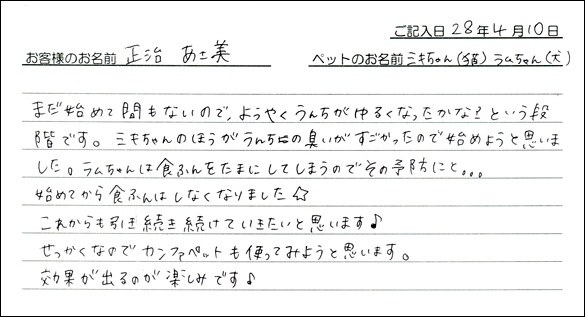 ご記入日 28年4月10日
お客様のお名前 正治 あさ美 ペットのお名前 ミキちゃん(猫) ラムちゃん(犬)
まだ始めて間もないので、ようやくうんちがゆるくなったかな?という段
階です。ミキちゃんのほうがうんちの臭いがすごかったので始めようと思いま
した。ラムちゃんは食ふんをたまにしてしまうのでその予防にと。。。
始めてから食ふんはしなくなりました☆
これからも引き続き続けていきたいと思います♪
せっかくなのでカンファペットも使ってみようと思います。
効果が出るのが楽しみです♪